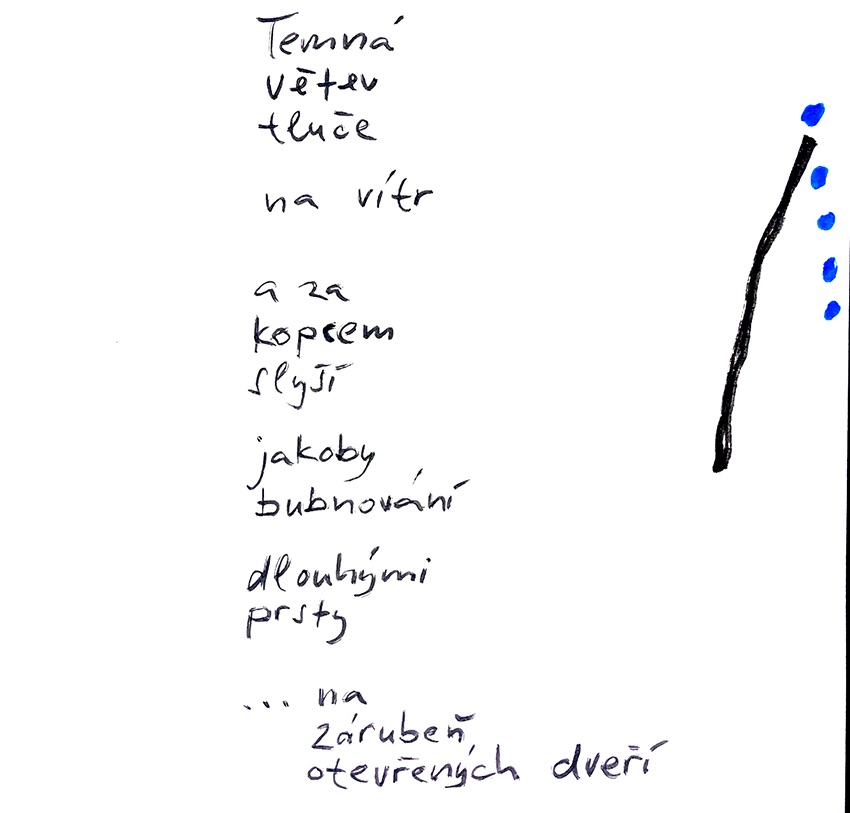 Temná
větev
tluče
na vítr
a za
kopcem
slyší
jakoby
bubnování
dlouhými
prsty
... na
zárubeň
otevřených dveří